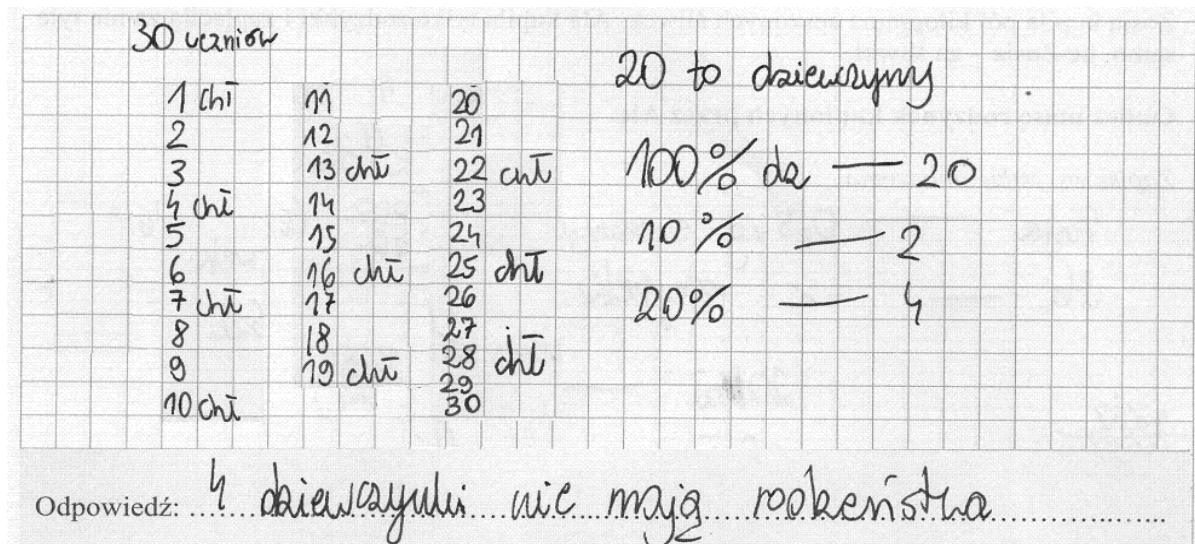 30 uczniów
1 chł
2
3
4 chł
5
6
7 chł
8
9
10 chł
11
12
13 chł
14
15
16 chł
17
18
19 chł
20
21
22 chł
23
24
25 chł
26
27
28 chł
29
30
20 to dziewczyny
100% dz — 20
10% — 2
20% — 4
Odpowiedź: 4 dziewczynki nie mają rodzeństwa